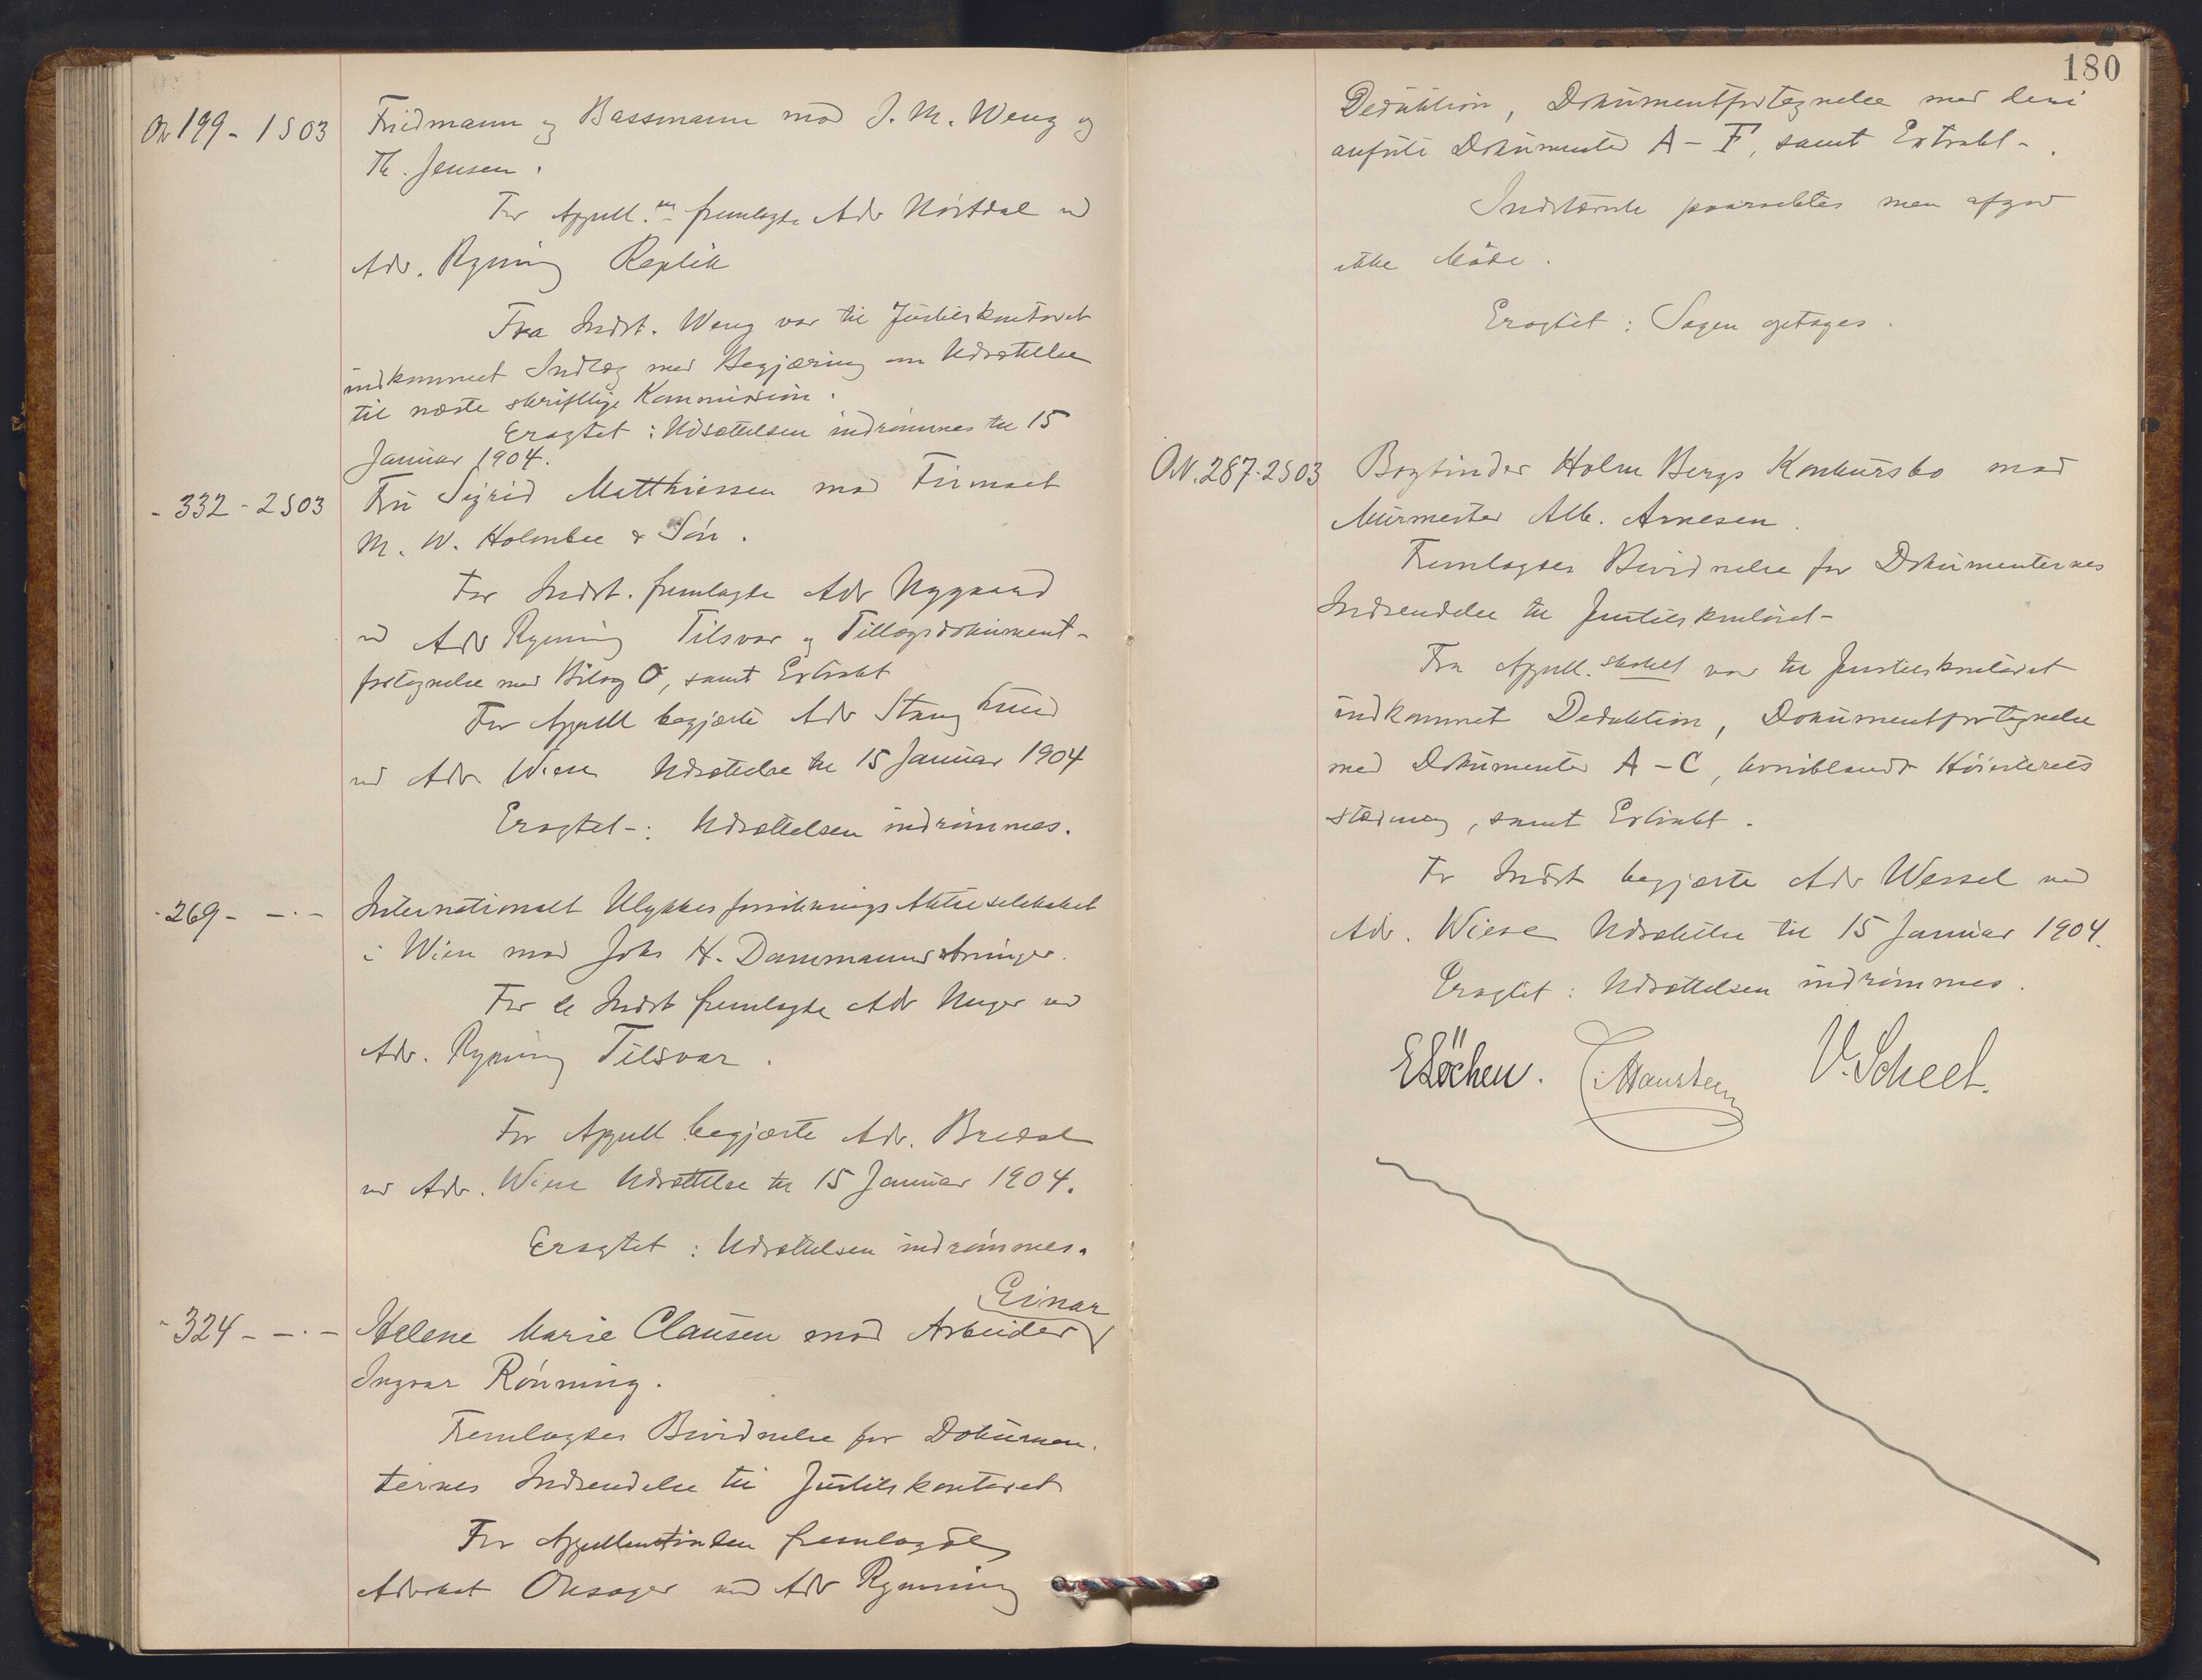 ON 199 - 1 S 03
Fridmann og Bassmann mod J. M. Weng og
Th. Jensen.
For Appell.<sup>ne</sup> fremlagte Adv Nørtdal ved
Adv. Rynning Replik
Fra Indst. Weng var til Justitskontoret
indkommet Indlæg med Begjæring om Udsættelse
til næste skriftlige Kommission.
Eragtet: Udsættelsen indrømmes til 15
Januar 1904.
- 332 - 2 S 03
Fru Sigrid Matthiessen mod Firmaet
M. W. Holmboe & Søn.
For Indst. fremlagte Adv Nygaard
ved Adv Rynning Tilsvar og Tillægsdokument-
fortegnelse med Bilag O, samt Extrakt
For Appell begjærte Adv Stang Lund
ved Adv Wiese Udsættelse til 15 Januar 1904
Eragtet-: Udsættelsen indrømmes.
- 269 - - . -
Internationalt Ulykkesforsikrings Aktieselskabet
i Wien mod Johs H. Dammanns Arvinger.
For de Indst fremlagte Adv Unger ved
Adv. Rynning Tilsvar.
For Appell begjærte Adv. Bredal
ved Adv. Wiese Udsættelse til 15 Januar 1904.
Eragtet: Udsættelsen indrømmes.
Einar
- 324 - - . -
Helene Marie Clausen mod Arbeider
Ingvar Rønning.
Fremlagdes Bevidnelse for Dokumen-
ternes Indsendelse til Justitskontoret
For Appellantinden fremlagde
Advokat Onsager ved Adv Rynning
180
Deduktion, Dokumentfortegnelse med deri
anførte Dokumenter A - F, samt Extrakt -.
Indstævnte paaraabtes men afgav
ikke Møde.
Eragtet: Sagen optages.
ON. 287 - 2 S 03
Bogbinder Holm Bergs Konkursbo mod
Murmester Alb. Arnesen.
Fremlagdes Bevidnelse for Dokumenternes
Indsendelse til Justitskontoret -
Fra Appell.skabet var til Justitskontoret
indkommet Deduktion, Dokumentfortegnelse
med Dokumenter A - C, hvoriblandt Høiesterets
stævning, samt Extrakt.
For Indst begjærte Adv Wessel ved
Adv. Wiese Udsættelse til 15 Januar 1904.
Eragtet: Udsættelsen indrømmes.
E Løchen. Hansteen V. Scheel.